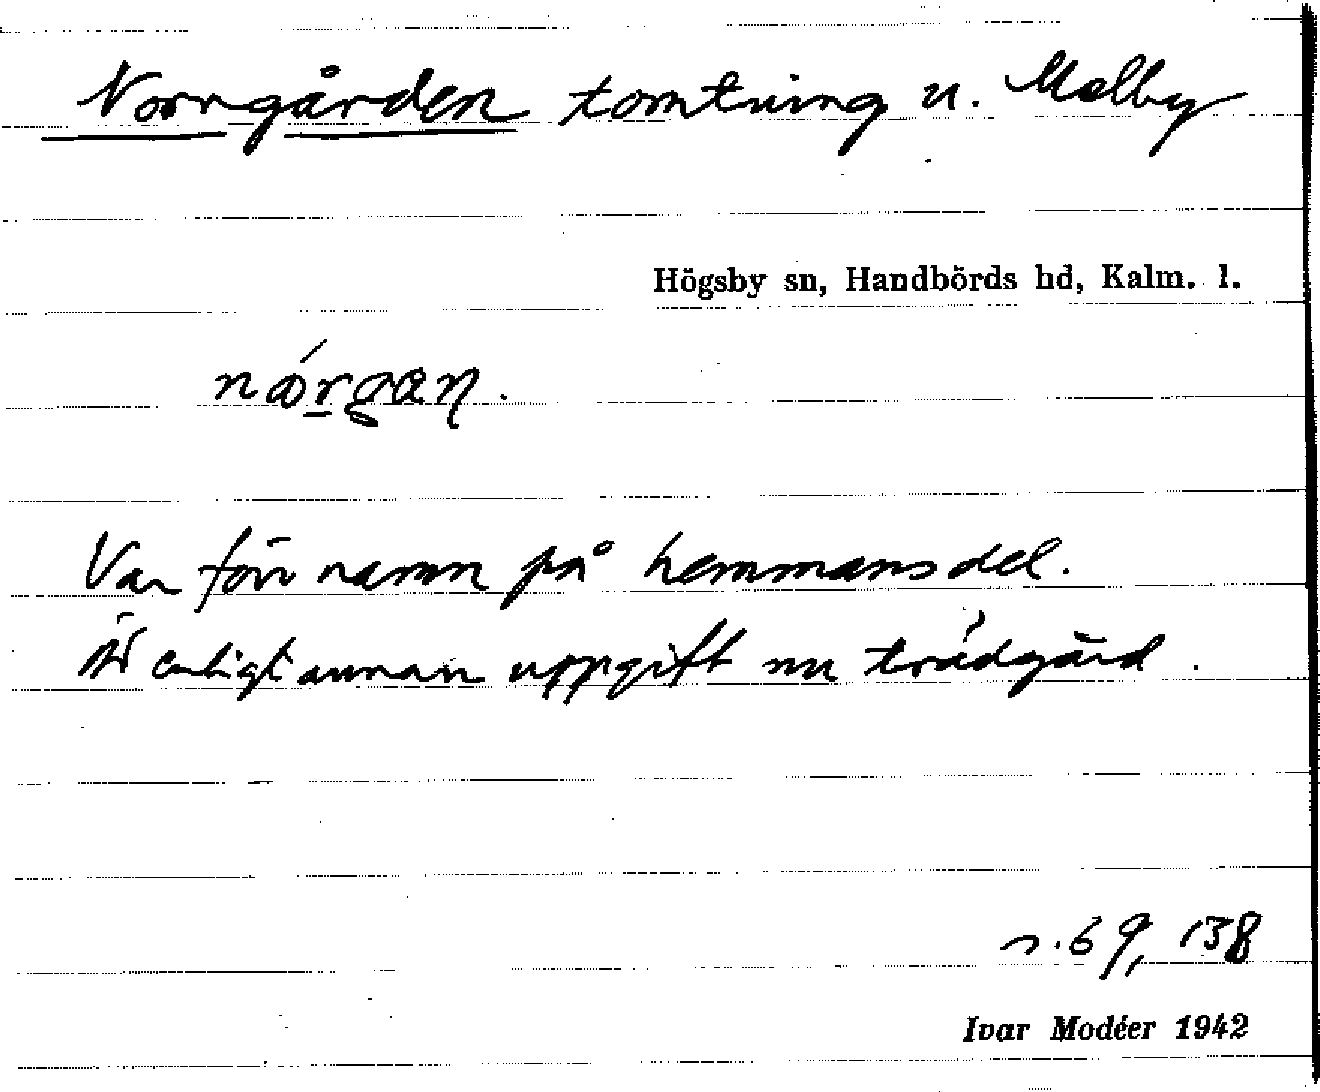 Norrgården tomtning u. Melby
Högsby sn, Handbörds hd, Kalm. l.
Var förr namn på hemmansdel.
Är enligt annan uppgift nu trädgård.
s. 69, 138
Ivar Modéer 1942